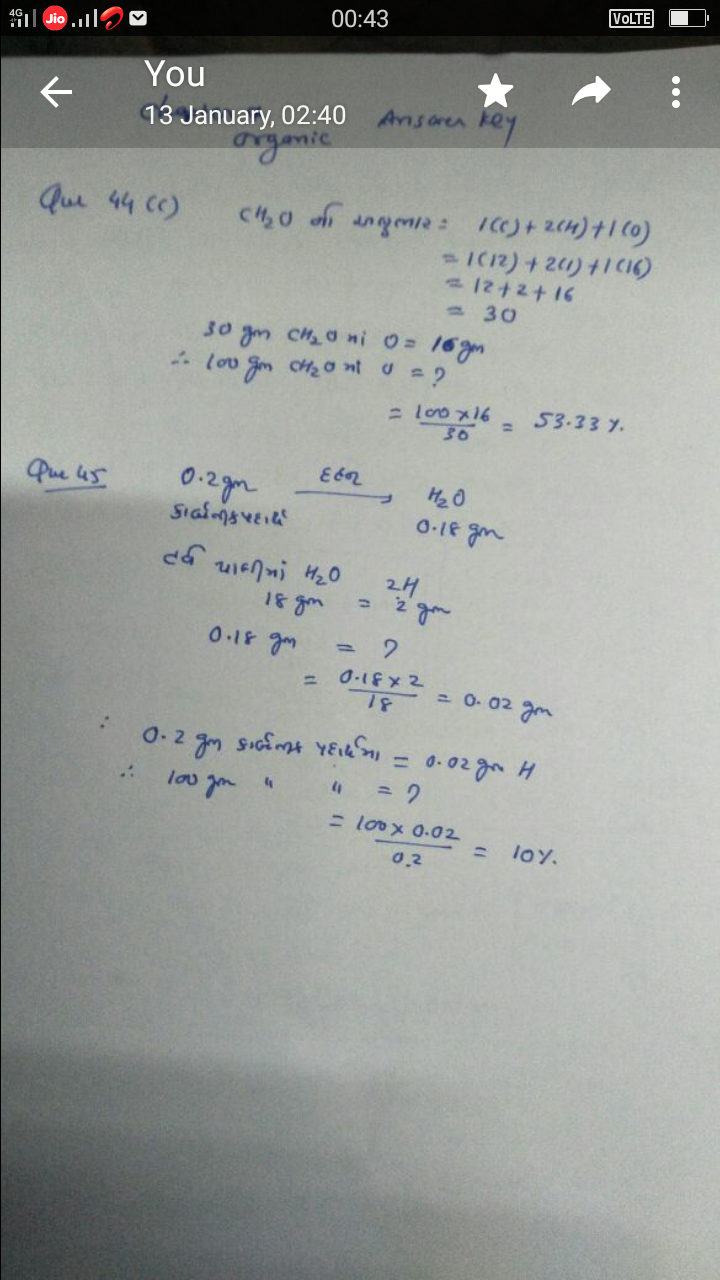 4G Jio 00:43 VoLTE
You
13 January, 02:40
organic Answer key
Que 44 (C) CH₂O નો અણુભાર = 1(C) + 2(H) + 1(O)
= 1(12) + 2(1) + 1(16)
= 12 + 2 + 16
= 30
30 gm CH₂O માં O = 16 gm
∴ 100 gm CH₂O માં O = ?
= 100 × 16 / 30 = 53.33 %.
Que 45 0.2 gm દહન → H₂O
કાર્બનિક પદાર્થ 0.18 gm
હવે પાણીમાં H₂O 2H
18 gm = 2 gm
0.18 gm = ?
= 0.18 × 2 / 18 = 0.02 gm
∴ 0.2 gm કાર્બનિક પદાર્થમાં = 0.02 gm H
∴ 100 gm " " = ?
= 100 × 0.02 / 0.2 = 10 %.